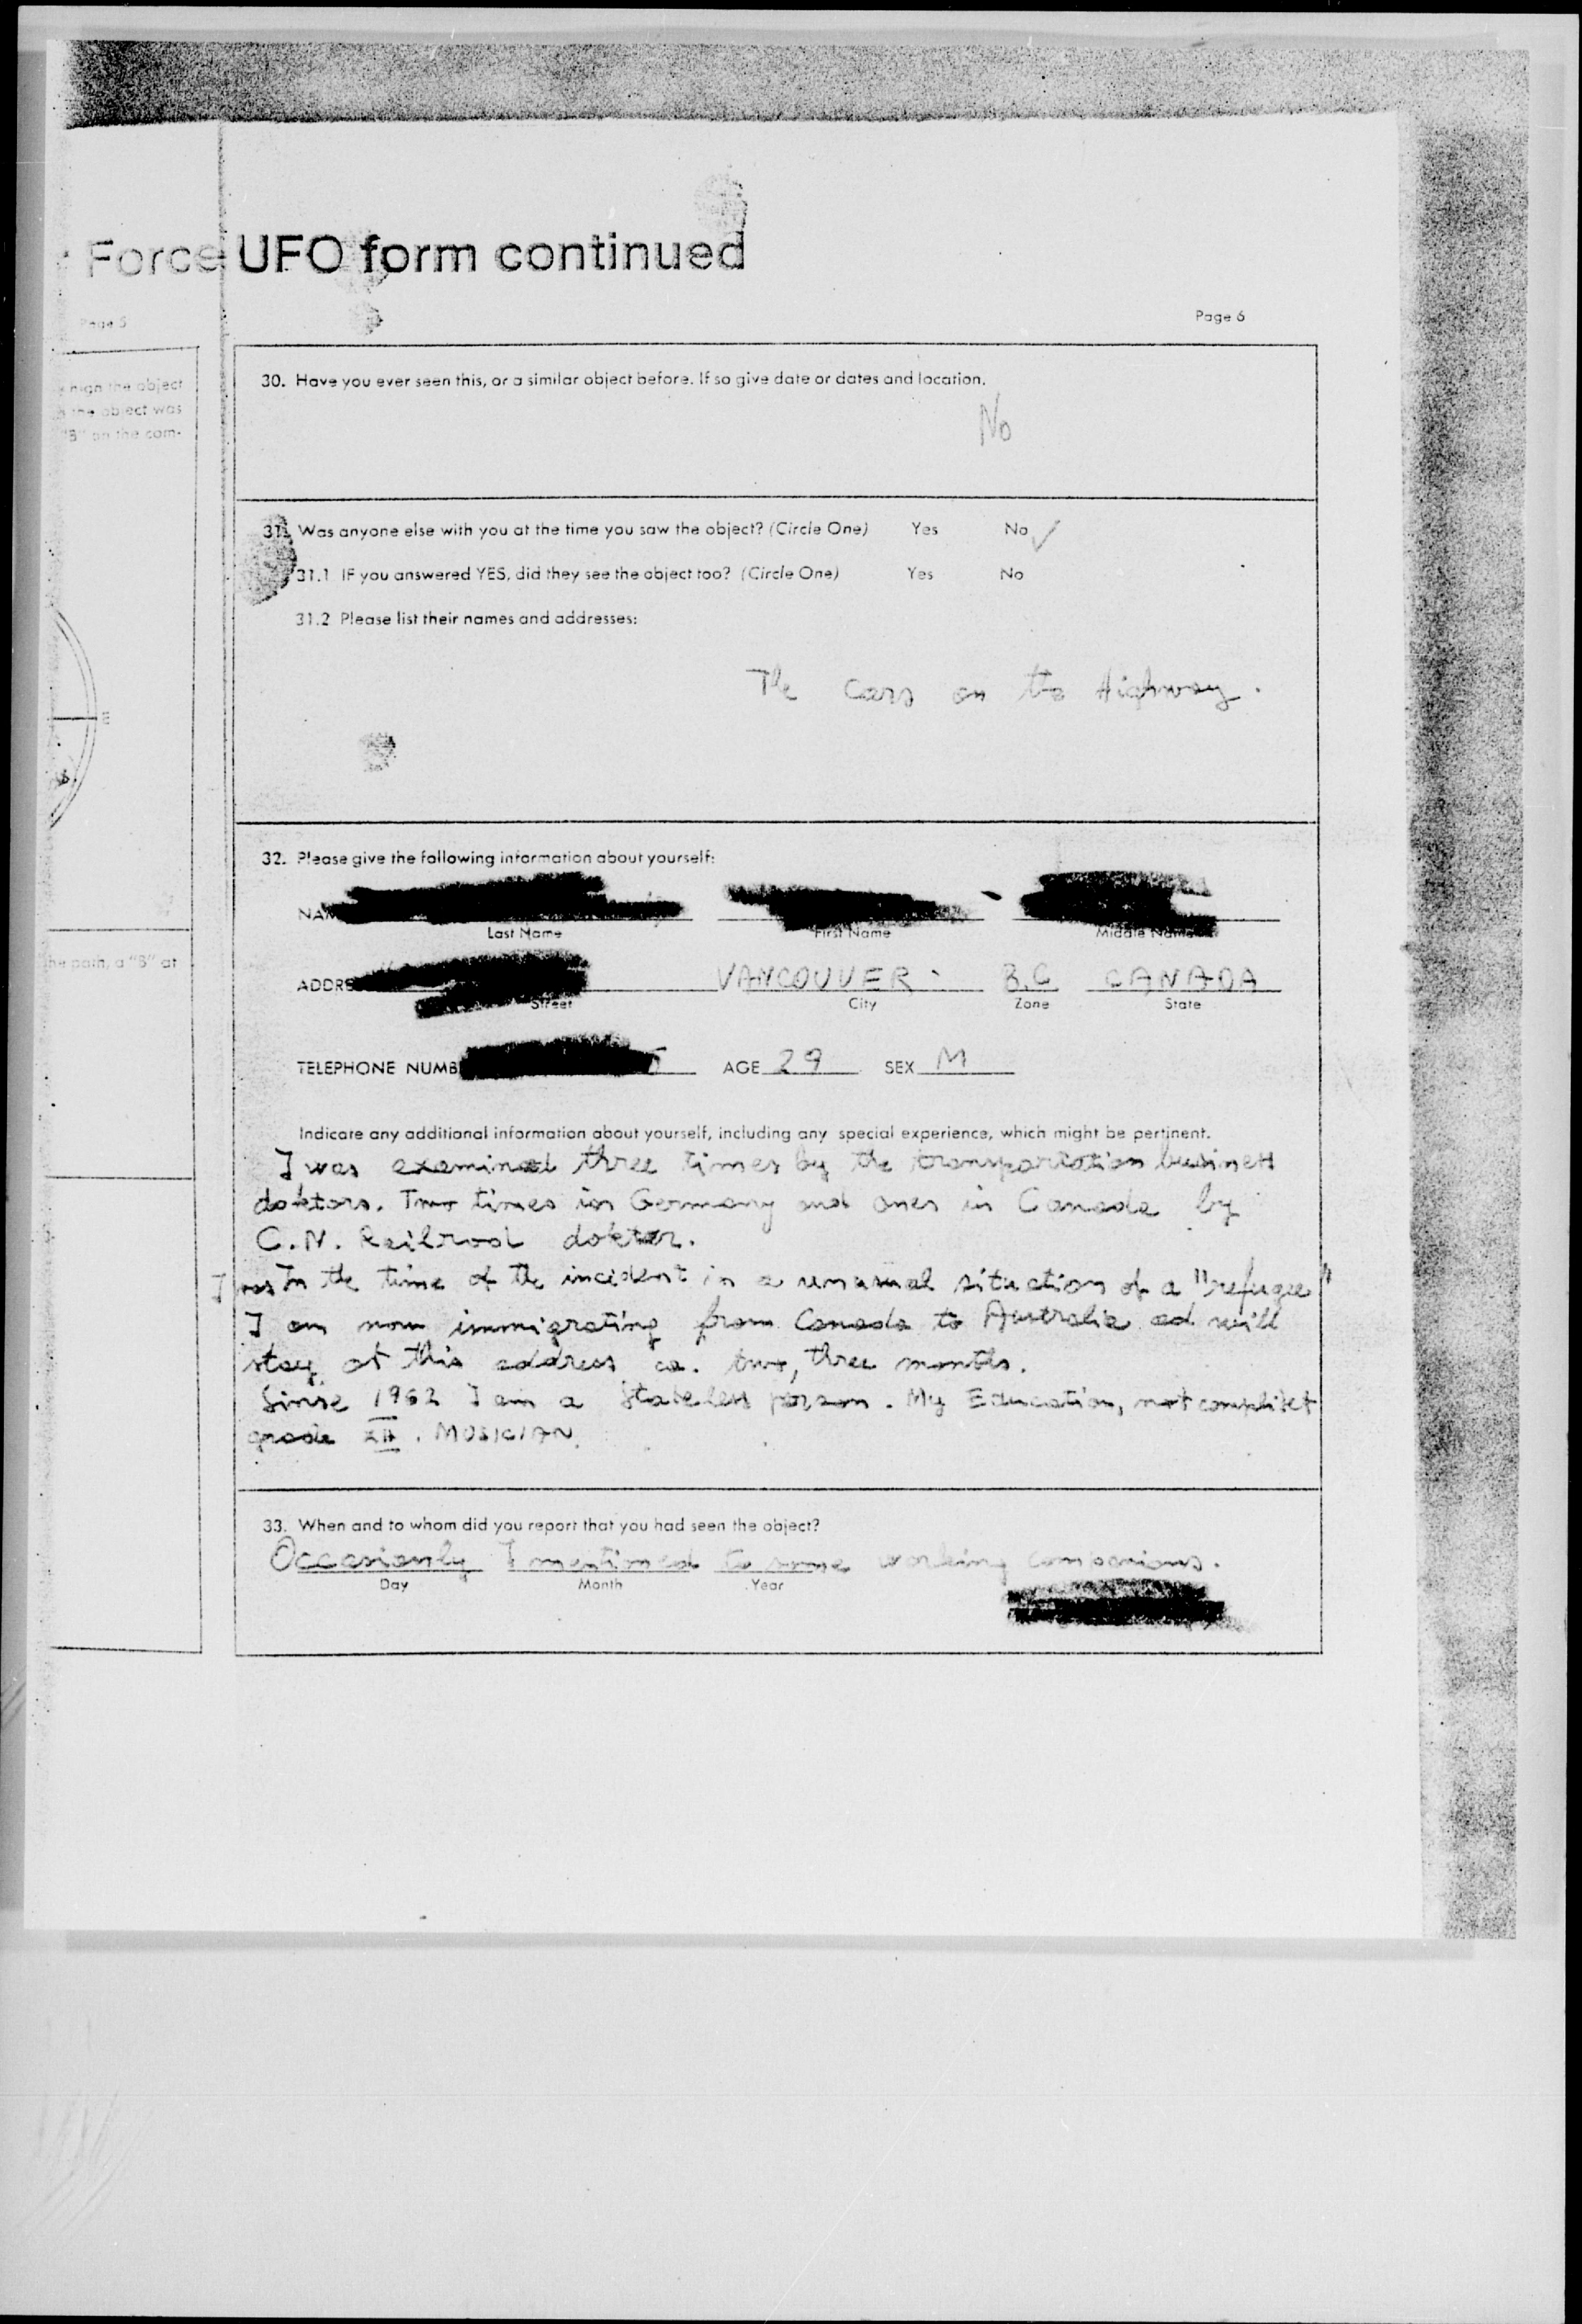 Force UFO form continued
Page 5
Page 6
high the object
the object was
"B" on the com-
E
the path, a "B" at
30. Have you ever seen this, or a similar object before. If so give date or dates and location.
No
31. Was anyone else with you at the time you saw the object? (Circle One) Yes No ✓
31.1 IF you answered YES, did they see the object too? (Circle One) Yes No
31.2 Please list their names and addresses:
The cars on the Highway.
32. Please give the following information about yourself:
NAM
Last Name First Name Middle Name
ADDRE VANCOUVER B.C CANADA
Street City Zone State
TELEPHONE NUMB AGE 29 SEX M
Indicate any additional information about yourself, including any special experience, which might be pertinent.
I was examined three times by the transportation business
doktors. Two times in Germany and ones in Canada by
C.N. Railrood dokter.
I was In the time of the incident in a unusual situation of a "refugee"
I am now immigrating from Canada to Australia ad will
stay at this address ca. two, three months.
Sinse 1962 I am a Stateless person. My Education, not complitet
grade XII. MUSICIAN.
33. When and to whom did you report that you had seen the object?
Occasionly I mentioned to some working companions.
Day Month Year